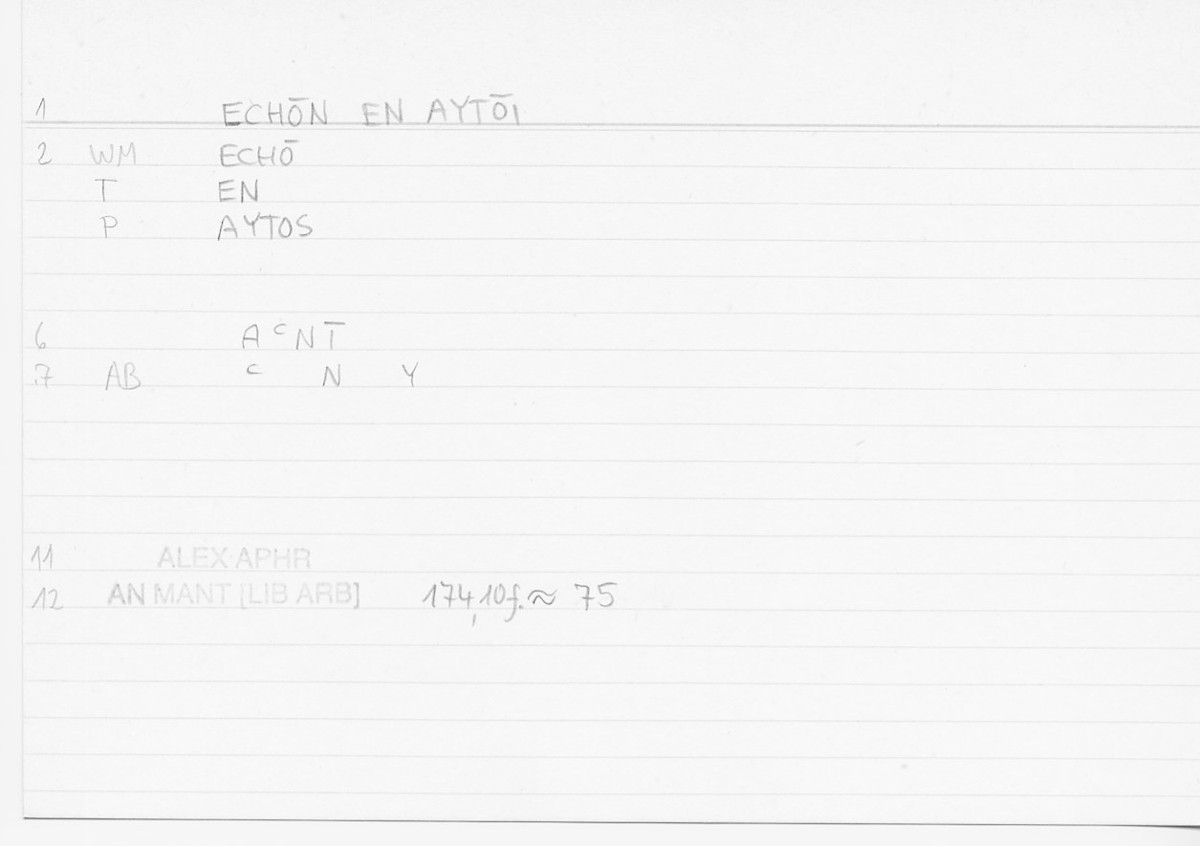 1 ECHŌN EN AYTŌI
2 WM ECHŌ
T EN
P AYTOS
6 A ᶜ N T̄
7 AB ᶜ N Y
11 ALEX·APHR
12 AN MANT [LIB ARB] 174,10f. ≈ 75